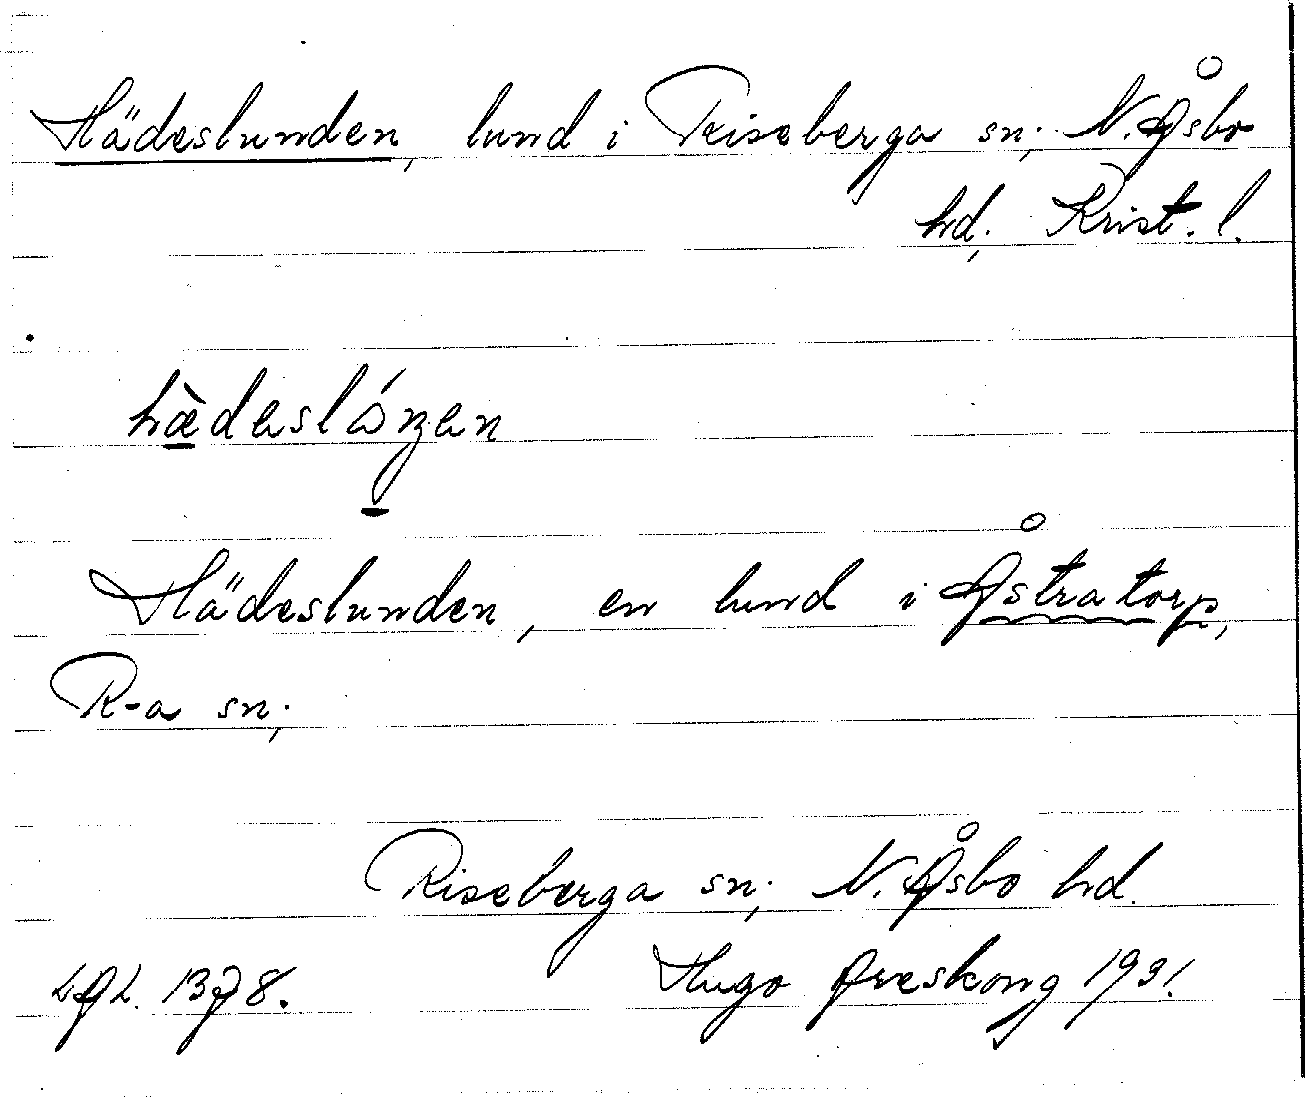 Hädeslunden, lund i Riseberga sn; N. Åsbo
hd; Krist. l.
hædeslónen
Hädeslunden, en lund i Åstratorp,
R-a sn;
Riseberga sn; N. Åsbo hd.
Hugo Areskoug 1931.